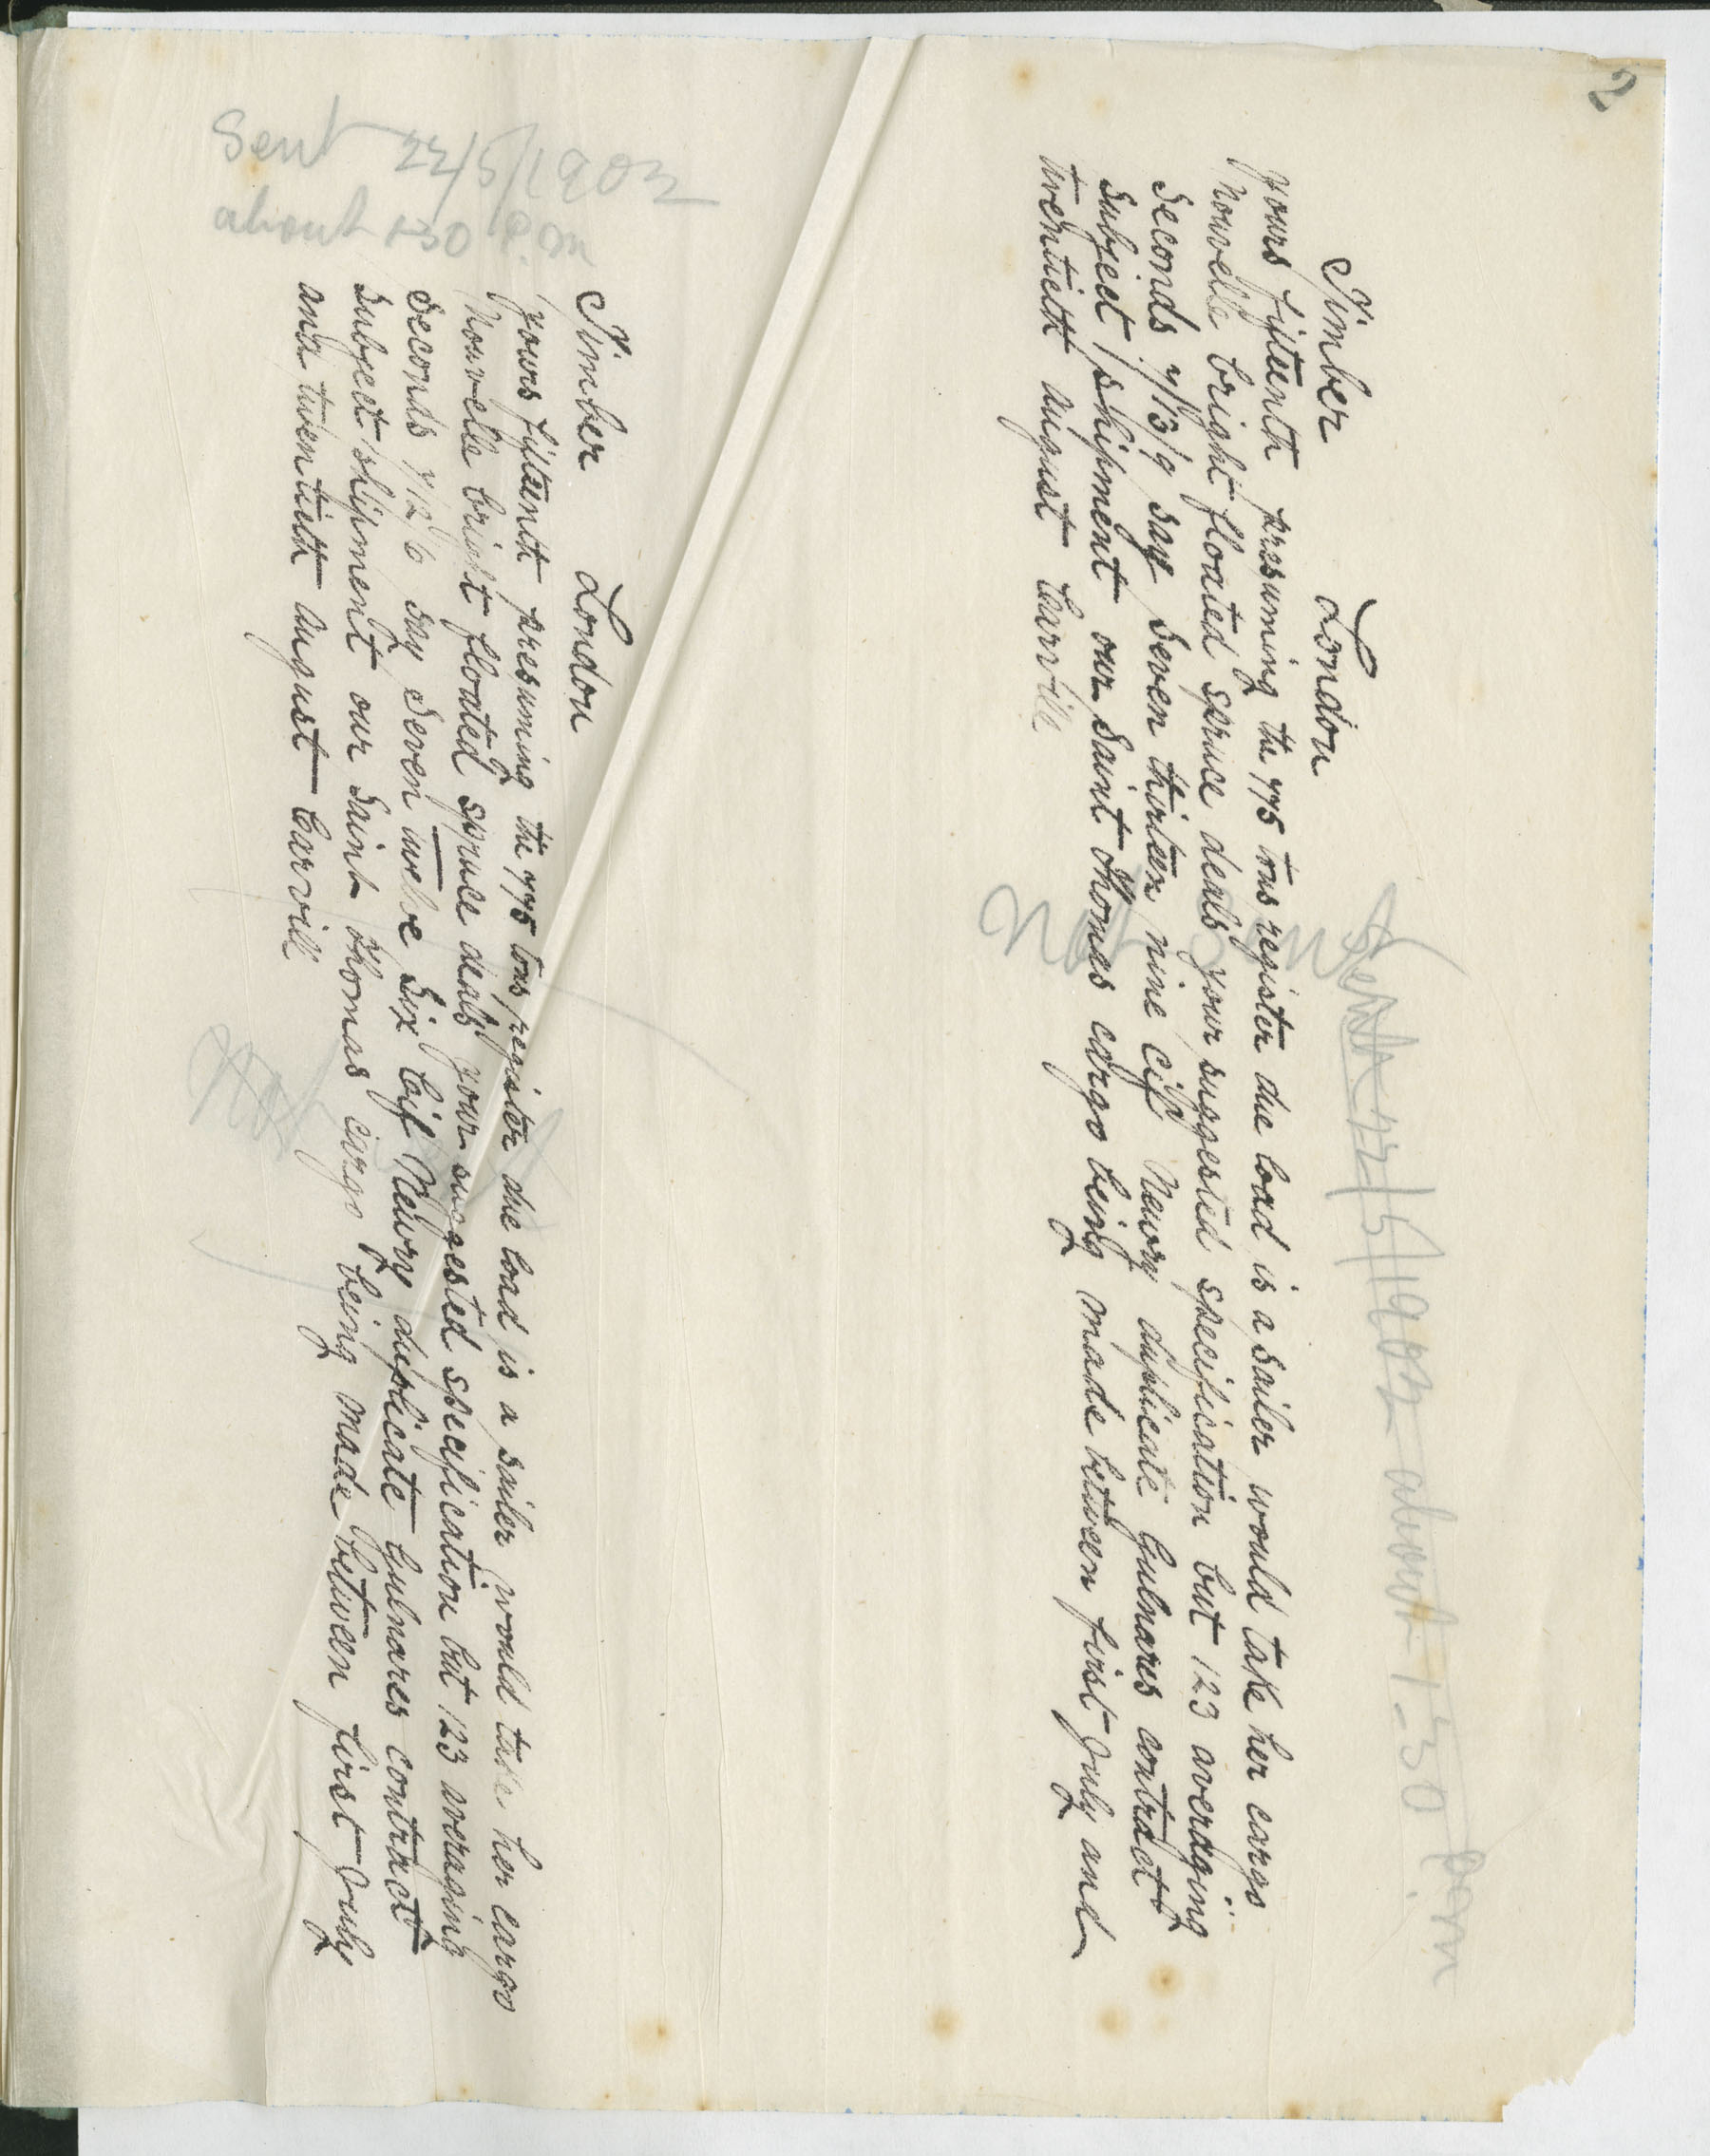 2
Sent 22/5/1902 about 1-30 P.m
Not Sent
Timber London
Yours fifteenth presuming the 775 tons register due load is a sailer would take her cargo
Nouvelle bright floated spruce deals your suggested specification but 123 averaging
Seconds 7/13/9 say Seven thirteen nine Cif Newry duplicate Gulnares contract
Subject shipment our Saint Thomas cargo being made between first July and
twentieth august Carvill
Sent 22/5/1902
about 1-30 P.m
Timber London
Yours fifteenth presuming the 775 tons register due load is a sailer would take her cargo
Nouvelle bright floated spruce deals your suggested specification but 123 averaging
Seconds 7/12/6 say Seven twelve Six Cif Newry duplicate Gulnares contract
Subject shipment our Saint Thomas cargo being made between first July
and twentieth august Carvill